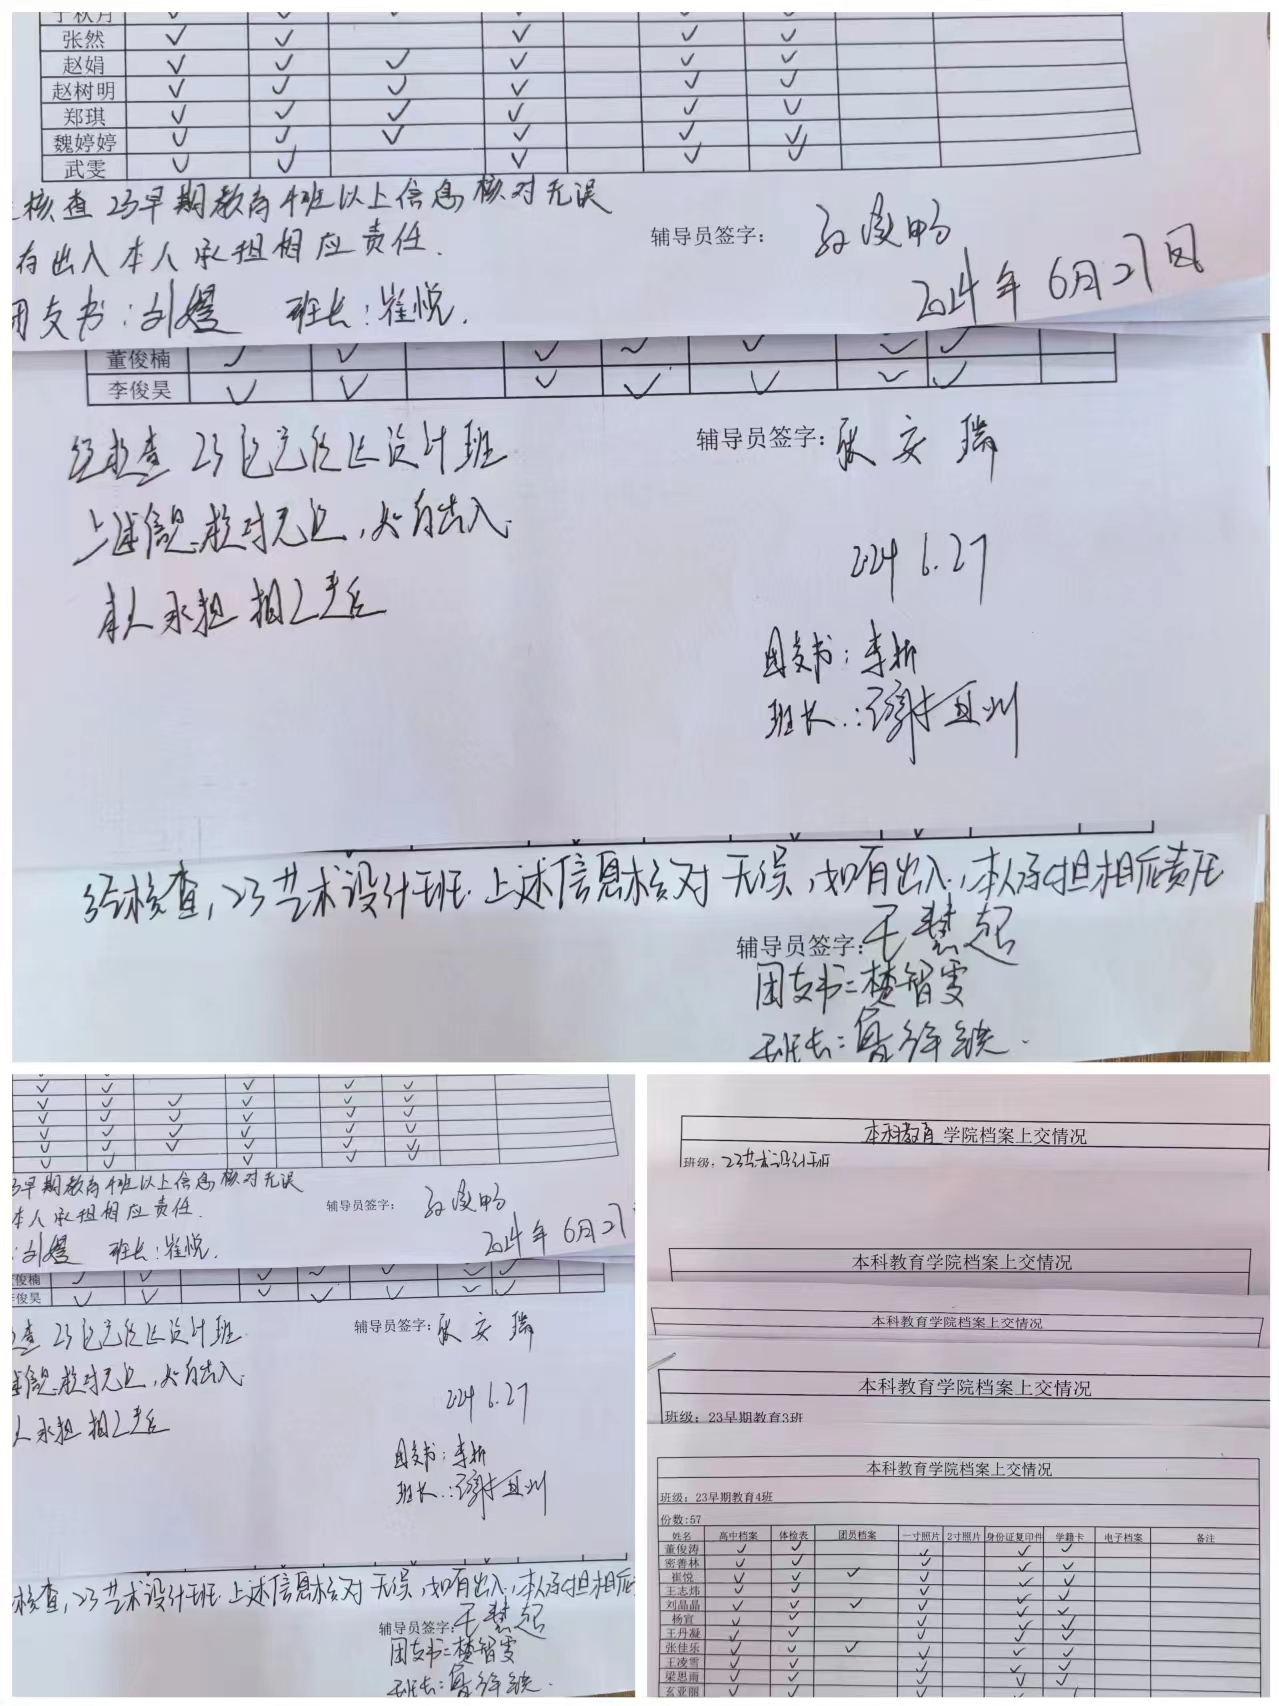 张然
赵娟
赵树明
郑琪
魏婷婷
武雯
核查23早期教育4班以上信息核对无误
有出入本人承担相应责任.
辅导员签字:
团支书:刘嫚 班长:崔悦.
2024年6月27日
董俊楠
李俊昊
经核查23 设计班
辅导员签字:张安瑞
上述信息核对无误,如有出入.
本人承担相应责任
2024 6.27
团支书:李析
班长:谢亚州
经核查,23艺术设计班 上述信息核对无误,如有出入,本人承担相应责任
辅导员签字:王慧超
团支书:樊智雯
班长:
早期教育4班以上信息核对无误
本人承担相应责任.
辅导员签字:
刘嫚 班长:崔悦.
2024年6月27
俊楠
俊昊
查23 设计班
辅导员签字:张安瑞
信息核对无误,如有出入.
人承担相应责任
2024 6.27
团支书:李析
班长:谢亚州
核查,23艺术设计班 上述信息核对无误,如有出入,本人承担相应
辅导员签字:王慧超
团支书:樊智雯
班长:
本科教育学院档案上交情况
班级:23艺术设计班
本科教育学院档案上交情况
本科教育学院档案上交情况
本科教育学院档案上交情况
班级:23早期教育3班
本科教育学院档案上交情况
班级:23早期教育4班
份数:57
姓名 高中档案 体检表 团员档案 一寸照片 2寸照片 身份证复印件 学籍卡 电子档案 备注
董俊涛
密善林
崔悦
王志炜
刘晶晶
杨宜
王丹凝
张佳乐
王凌雪
梁思雨
玄亚丽